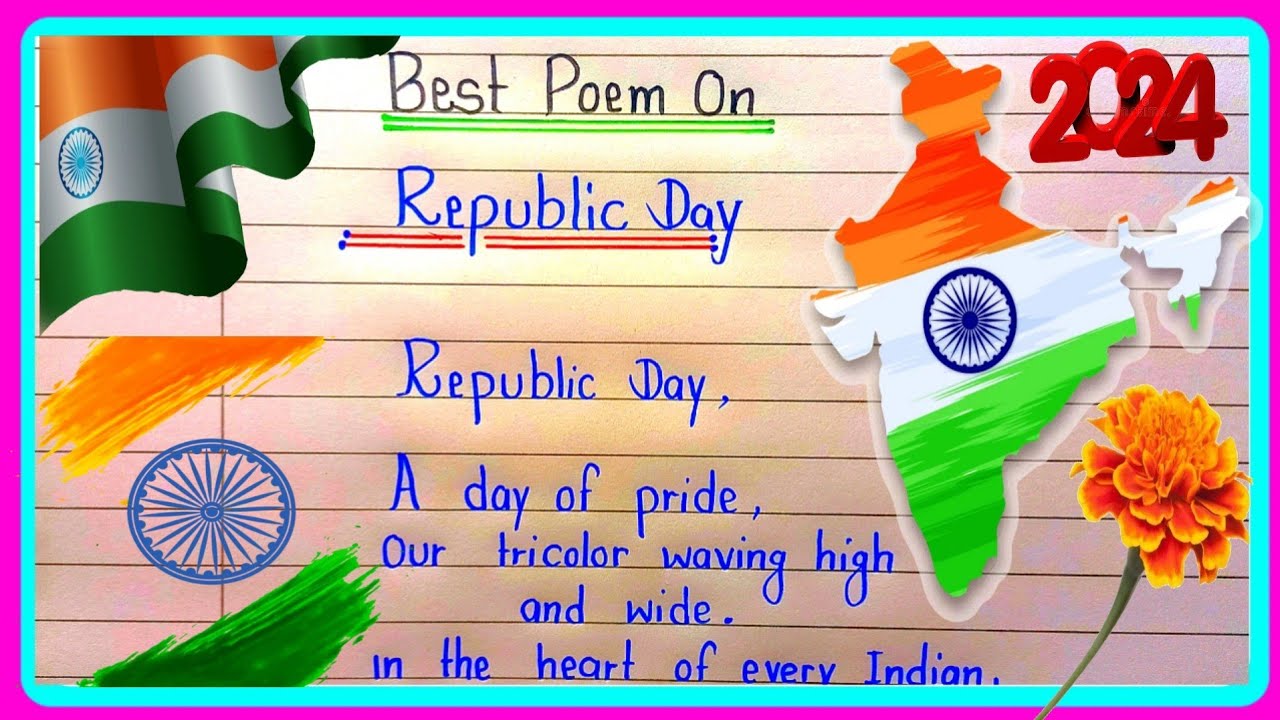 Best Poem On
2024
Republic Day
Republic Day,
A day of pride,
Our tricolor waving high
and wide.
In the heart of every Indian.